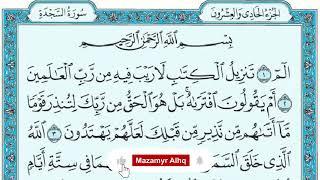 الجزء الحادي والعشرون
سورة السجدة
بِسْمِ اللَّهِ الرَّحْمَٰنِ الرَّحِيمِ
الٓمٓ ١ تَنزِيلُ الْكِتَٰبِ لَا رَيْبَ فِيهِ مِن رَّبِّ الْعَٰلَمِينَ
٢ أَمْ يَقُولُونَ افْتَرَىٰهُ بَلْ هُوَ الْحَقُّ مِن رَّبِّكَ لِتُنذِرَ قَوْمًا
مَّآ أَتَىٰهُم مِّن نَّذِيرٍ مِّن قَبْلِكَ لَعَلَّهُمْ يَهْتَدُونَ ٣ اللَّهُ
الَّذِي خَلَقَ السَّمَ مَا فِي سِتَّةِ أَيَّامٍ
Mazamyr Alhq